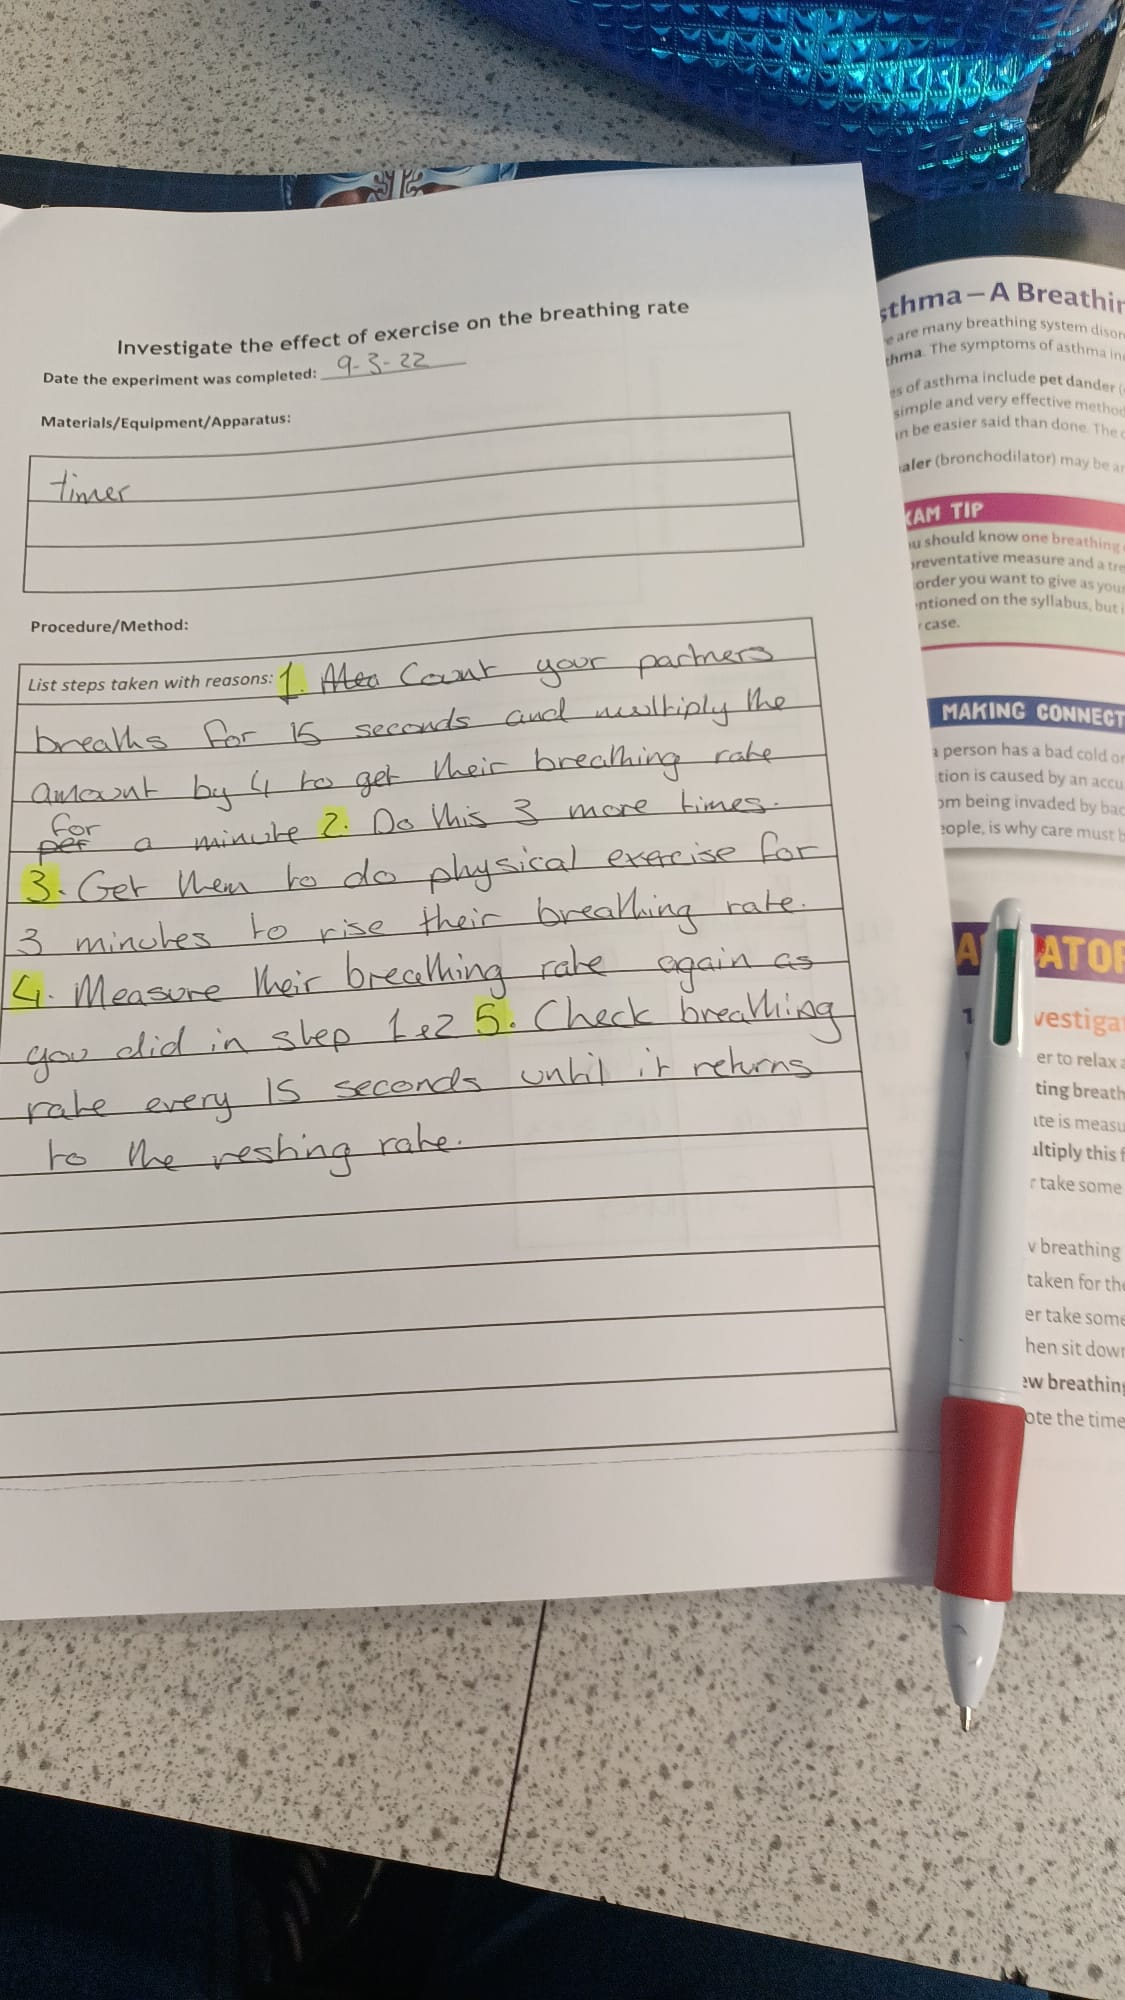 Investigate the effect of exercise on the breathing rate
Date the experiment was completed: 9-3-22
Materials/Equipment/Apparatus:
timer
Procedure/Method:
List steps taken with reasons: 1. Count your partners
breaths for 15 seconds and multiply the
amount by 4 to get their breathing rate
for
per a minute 2. Do this 3 more times.
3. Get them to do physical exercise for
3 minutes to rise their breathing rate.
4. Measure their breathing rate again as
you did in step 1 & 2 5. Check breathing
rate every 15 seconds until it returns
to the resting rate.
sthma – A Breathin
are many breathing system disor
hma. The symptoms of asthma in
es of asthma include pet dander (
simple and very effective method
n be easier said than done. The
aler (bronchodilator) may be a
XAM TIP
u should know one breathing
preventative measure and a tre
order you want to give as your
ntioned on the syllabus, but i
case.
MAKING CONNECT
a person has a bad cold or
tion is caused by an accu
om being invaded by bac
eople, is why care must b
ATOR
1
vestiga
er to relax a
ting breath
ate is measu
ultiply this f
r take some
v breathing
taken for the
er take some
hen sit down
ew breathing
ote the time